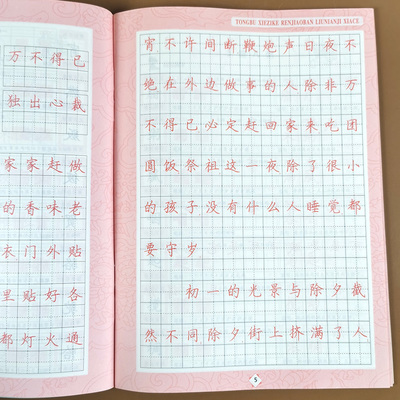 万不得已
独出心裁
家家赶做
的香味老
衣门外贴
里贴好各
都灯火通
TONGBU XIEZIKE RENJIAOBAN LIUNIANJI XIACE
宵不许间断鞭炮声日夜不
绝在外边做事的人除非万
不得已必定赶回家来吃团
圆饭祭祖这一夜除了很小
的孩子没有什么人睡觉都
要守岁
初一的光景与除夕截
然不同除夕街上挤满了人
5